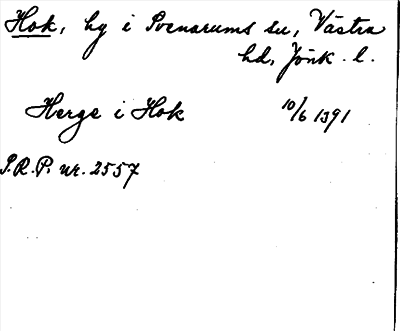 Hok, by i Svenarums sn, Västra
hd, Jönk. l.
Herge i Hok 10/6 1391
S.R.P. nr. 2557